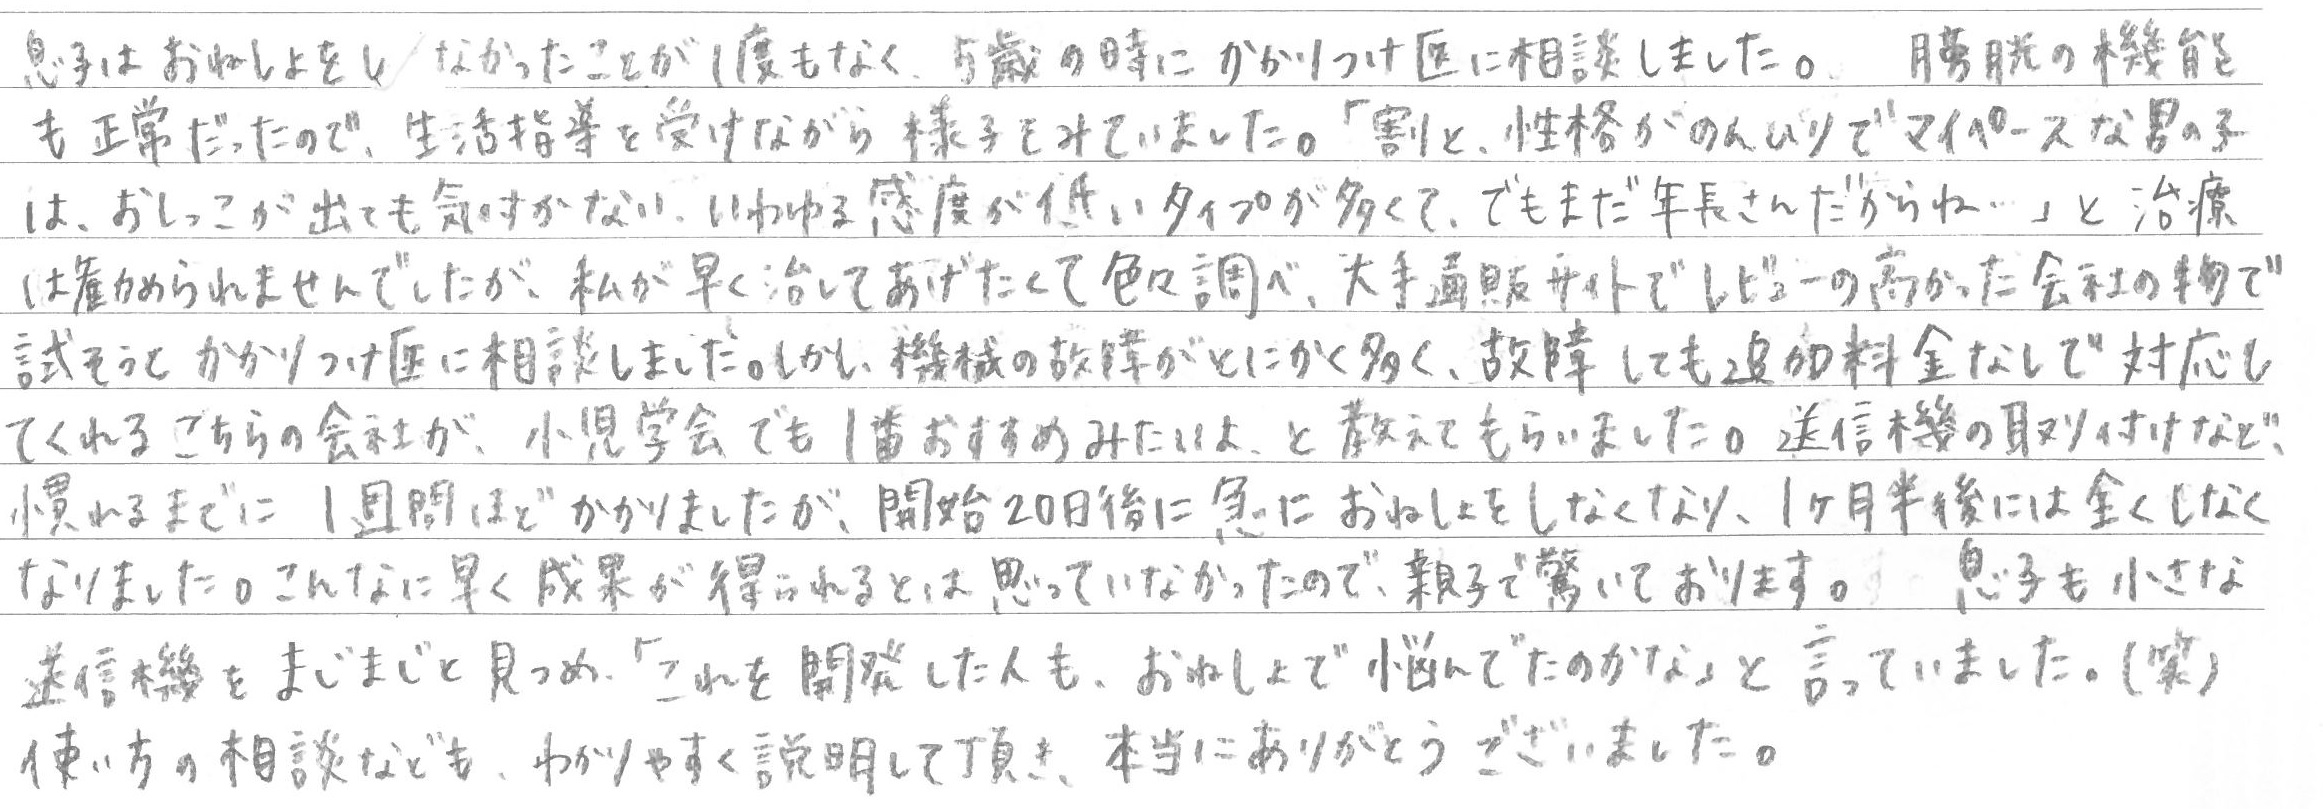 息子はおねしょをしなかったことが1度もなく、5歳の時にかかりつけ医に相談しました。 膀胱の機能
も正常だったので、生活指導を受けながら様子をみていました。「割と、性格がのんびりでマイペースな男の子
は、おしっこが出ても気付かない、いわゆる感度が低いタイプが多くて、でもまだ年長さんだからね…」と治療
は勧められませんでしたが、私が早く治してあげたくて色々調べ、大手通販サイトでレビューの高かった会社の物で
試そうとかかりつけ医に相談しました。しかし、機械の故障がとにかく多く、故障しても追加料金なしで対応し
てくれるこちらの会社が、小児学会でも1番おすすめみたいよ、と教えてもらいました。送信機の取り付けなど、
慣れるまでに1週間ほどかかりましたが、開始20日後に急におねしょをしなくなり、1ヶ月半後には全くしなく
なりました。こんなに早く成果が得られるとは思っていなかったので、親子で驚いております。 息子も小さな
送信機をまじまじと見つめ、「これを開発した人も、おねしょで悩んでたのかな」と言っていました。(笑)
使い方の相談なども、わかりやすく説明して頂き、本当にありがとうございました。